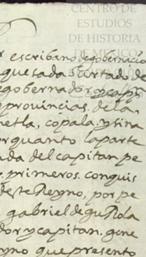 CENTRO DE
ESTUDIOS
DE HISTORIA
DE MEXICO
escribano degobernacio
quesada scortado de
gobernador, ycapn
provincias, de la
metla, copala, ysina
porquanto laparte
da del capitan pe
primeros. conquis
deste Reyno, por pe
gabriel de
dor ycapitan, gene
yno que presento